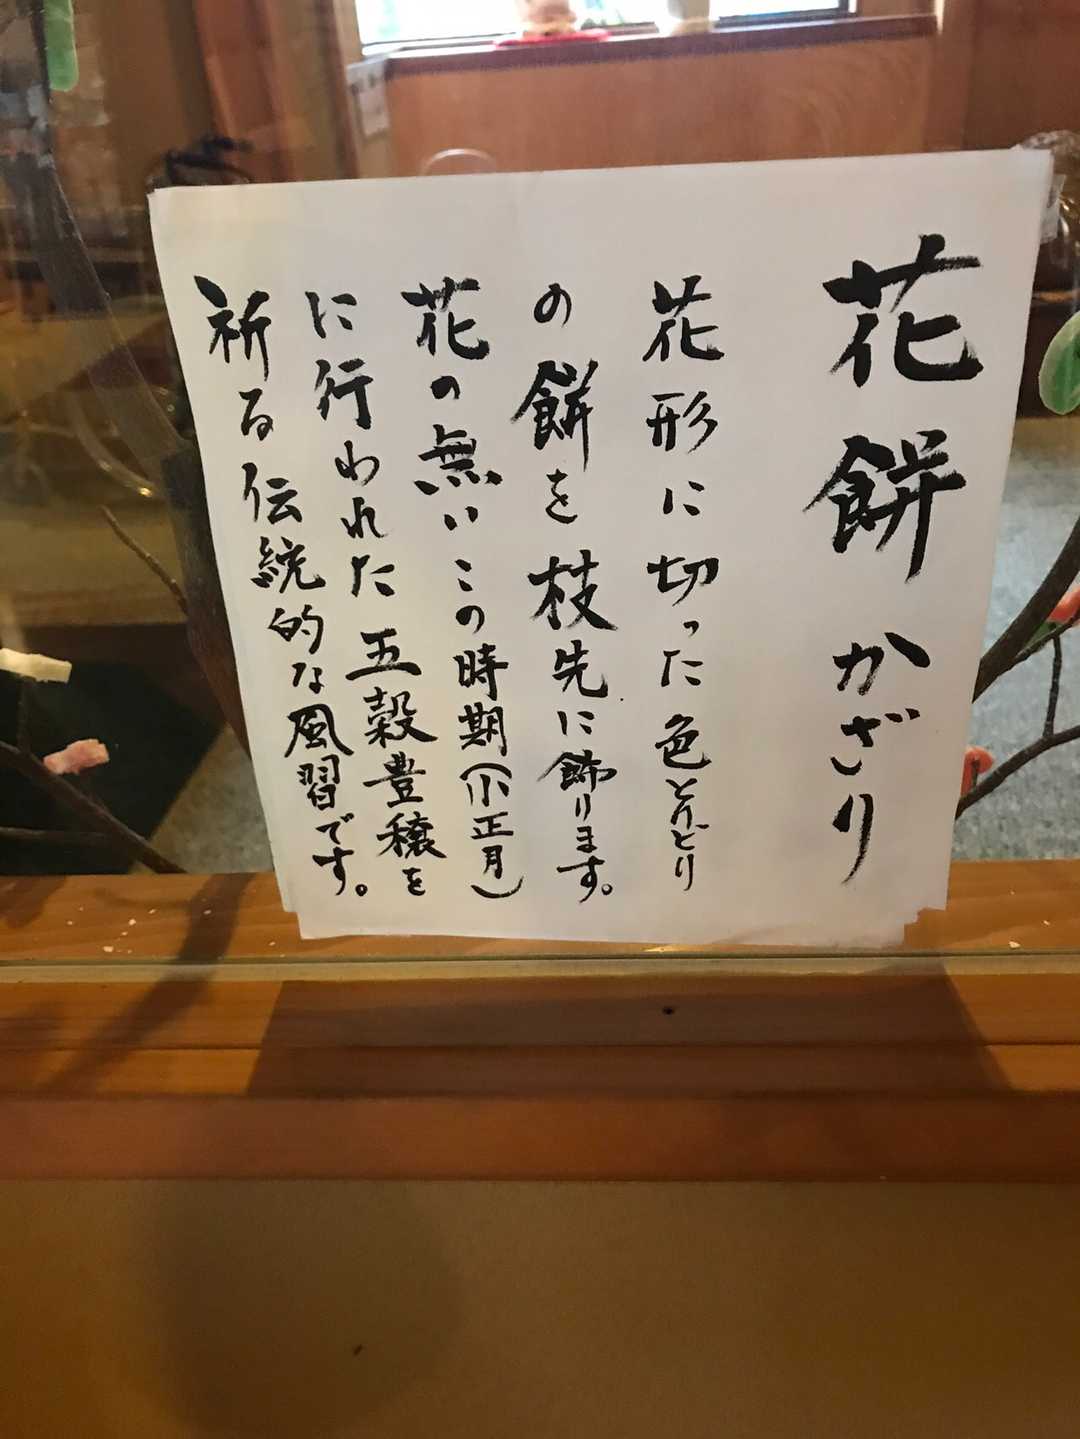 花餅かざり
花形に切った色とりどり
の餅を枝先に飾ります。
花の無いこの時期(小正月)
に行われた五穀豊穣を
祈る伝統的な風習です。